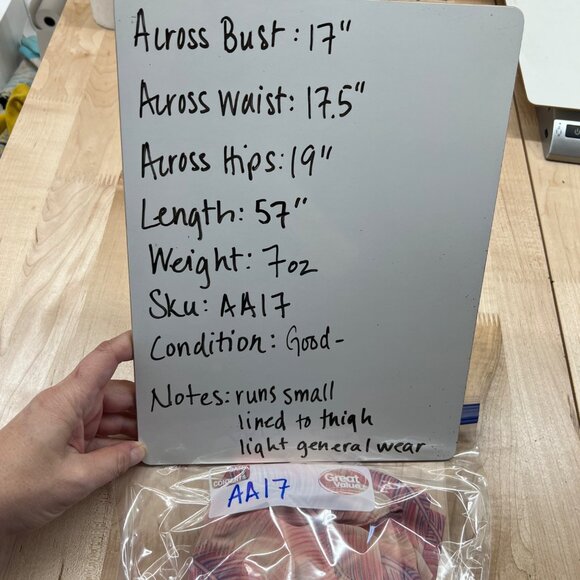 Across Bust: 17"
Across Waist: 17.5"
Across Hips: 19"
Length: 57"
Weight: 7oz
Sku: AA17
Condition: Good-
Notes: runs small
lined to thigh
light general wear
AA17
Great Value